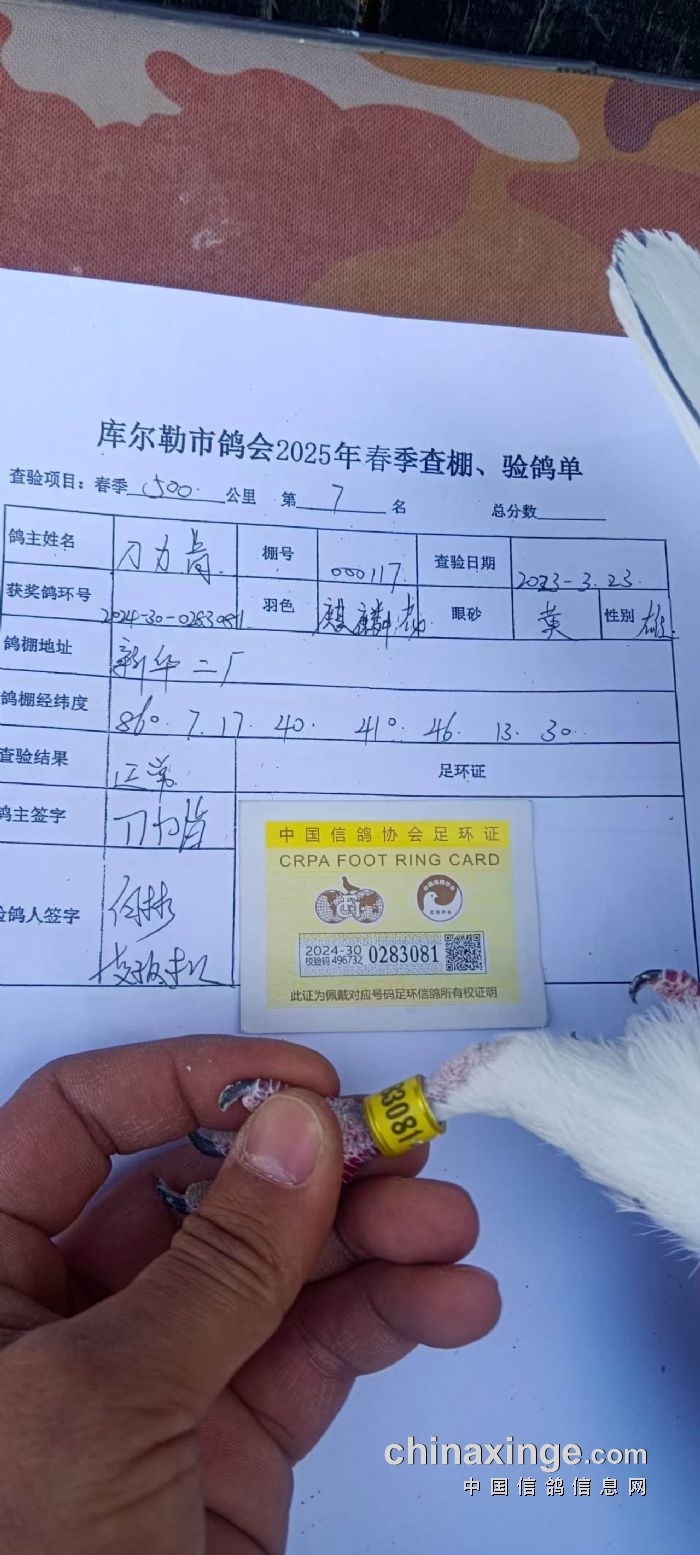 库尔勒市鸽会2025年春季查棚、验鸽单
查验项目：春季 500 公里 第 7 名 总分数
鸽主姓名 刀力肯 棚号 000117 查验日期 2023-3.23.
获奖鸽环号 2024-30-0283081 羽色 麒麟花 眼砂 黄 性别 雄
鸽棚地址 新华二厂
鸽棚经纬度 86°. 7. 17. 40. 41°. 46. 13. 30.
查验结果 正常 足环证
鸽主签字
验鸽人签字
中国信鸽协会足环证
CRPA FOOT RING CARD
2024-30
校验码 496732 0283081
此证为佩戴对应号码足环信鸽所有权证明
83081
chinaxinge.com
中国信鸽信息网